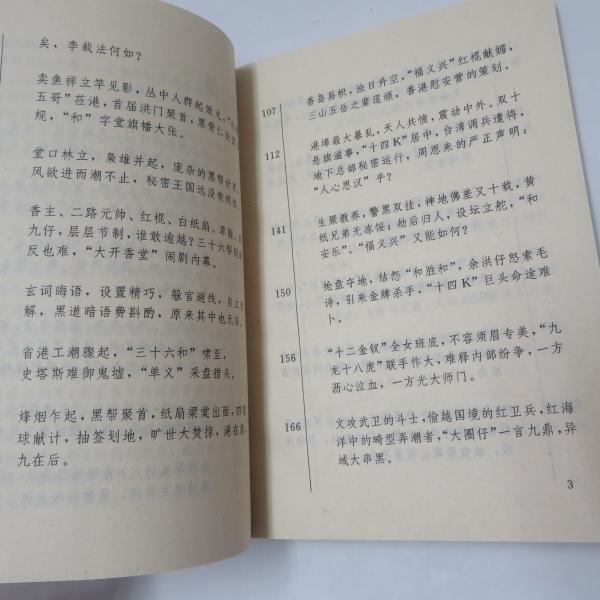 矣，李裁法何如？
卖鱼祥立竿见影，丛中人群起效尤，“
五哥”莅港，首届洪门聚首，黑脊仁设
规，“和”字堂旗幡大张。
堂口林立，枭雄并起，庞杂的黑帮世
风欲进而潮不止，秘密王国远没有终
香主、二路元帅、红棍、白纸扇、草鞋、
九仔，层层节制，谁敢逾越？三十六帮规
反也难，“大开香堂”闹剧内幕。
玄词晦语，设置精巧，躲官避线，自立
解，黑道暗语费斟酌，原来其中也无
省港工潮骤起，“三十六和”啸至，
史塔斯难御鬼墟，“单义”采盘猎头。
烽烟乍起，黑帮聚首，纸扇梁堂出面，四
球献计，抽签划地，旷世大焚掠，港在前，
九在后。
107
香岛易帜，浊日升空，“福义兴”红棍献媚，
三山五岳之辈逞顽，香港慰安营的策划。
112
港埠最大暴乱，天人共愤，震动中外，双十
悬旗滋事，“十四K”居中，台湾调兵遣将，
地下总部秘密运行，周恩来的严正声明：
“人心思汉”乎？
141
生聚教养，警黑双挂，神地佛差又十载，黄
纸兄弟无冻馁；劫后归人，设坛立舵，“和
安乐”、“福义兴”又能如何？
150
抢盘夺地，结怨“和胜和”，余洪仔怒索毛
诗，引来金牌杀手，“十四K”巨头命途难
卜。
156
“十二金钗”全女班底，不容须眉专美，“九
龙十八虎”联手作大，难释内部纷争，一方
沥心泣血，一方光大师门。
166
文攻武卫的斗士，偷越国境的红卫兵，红海
洋中的畸型弄潮者，“大圈仔”一言九鼎，异
域大串黑。
3